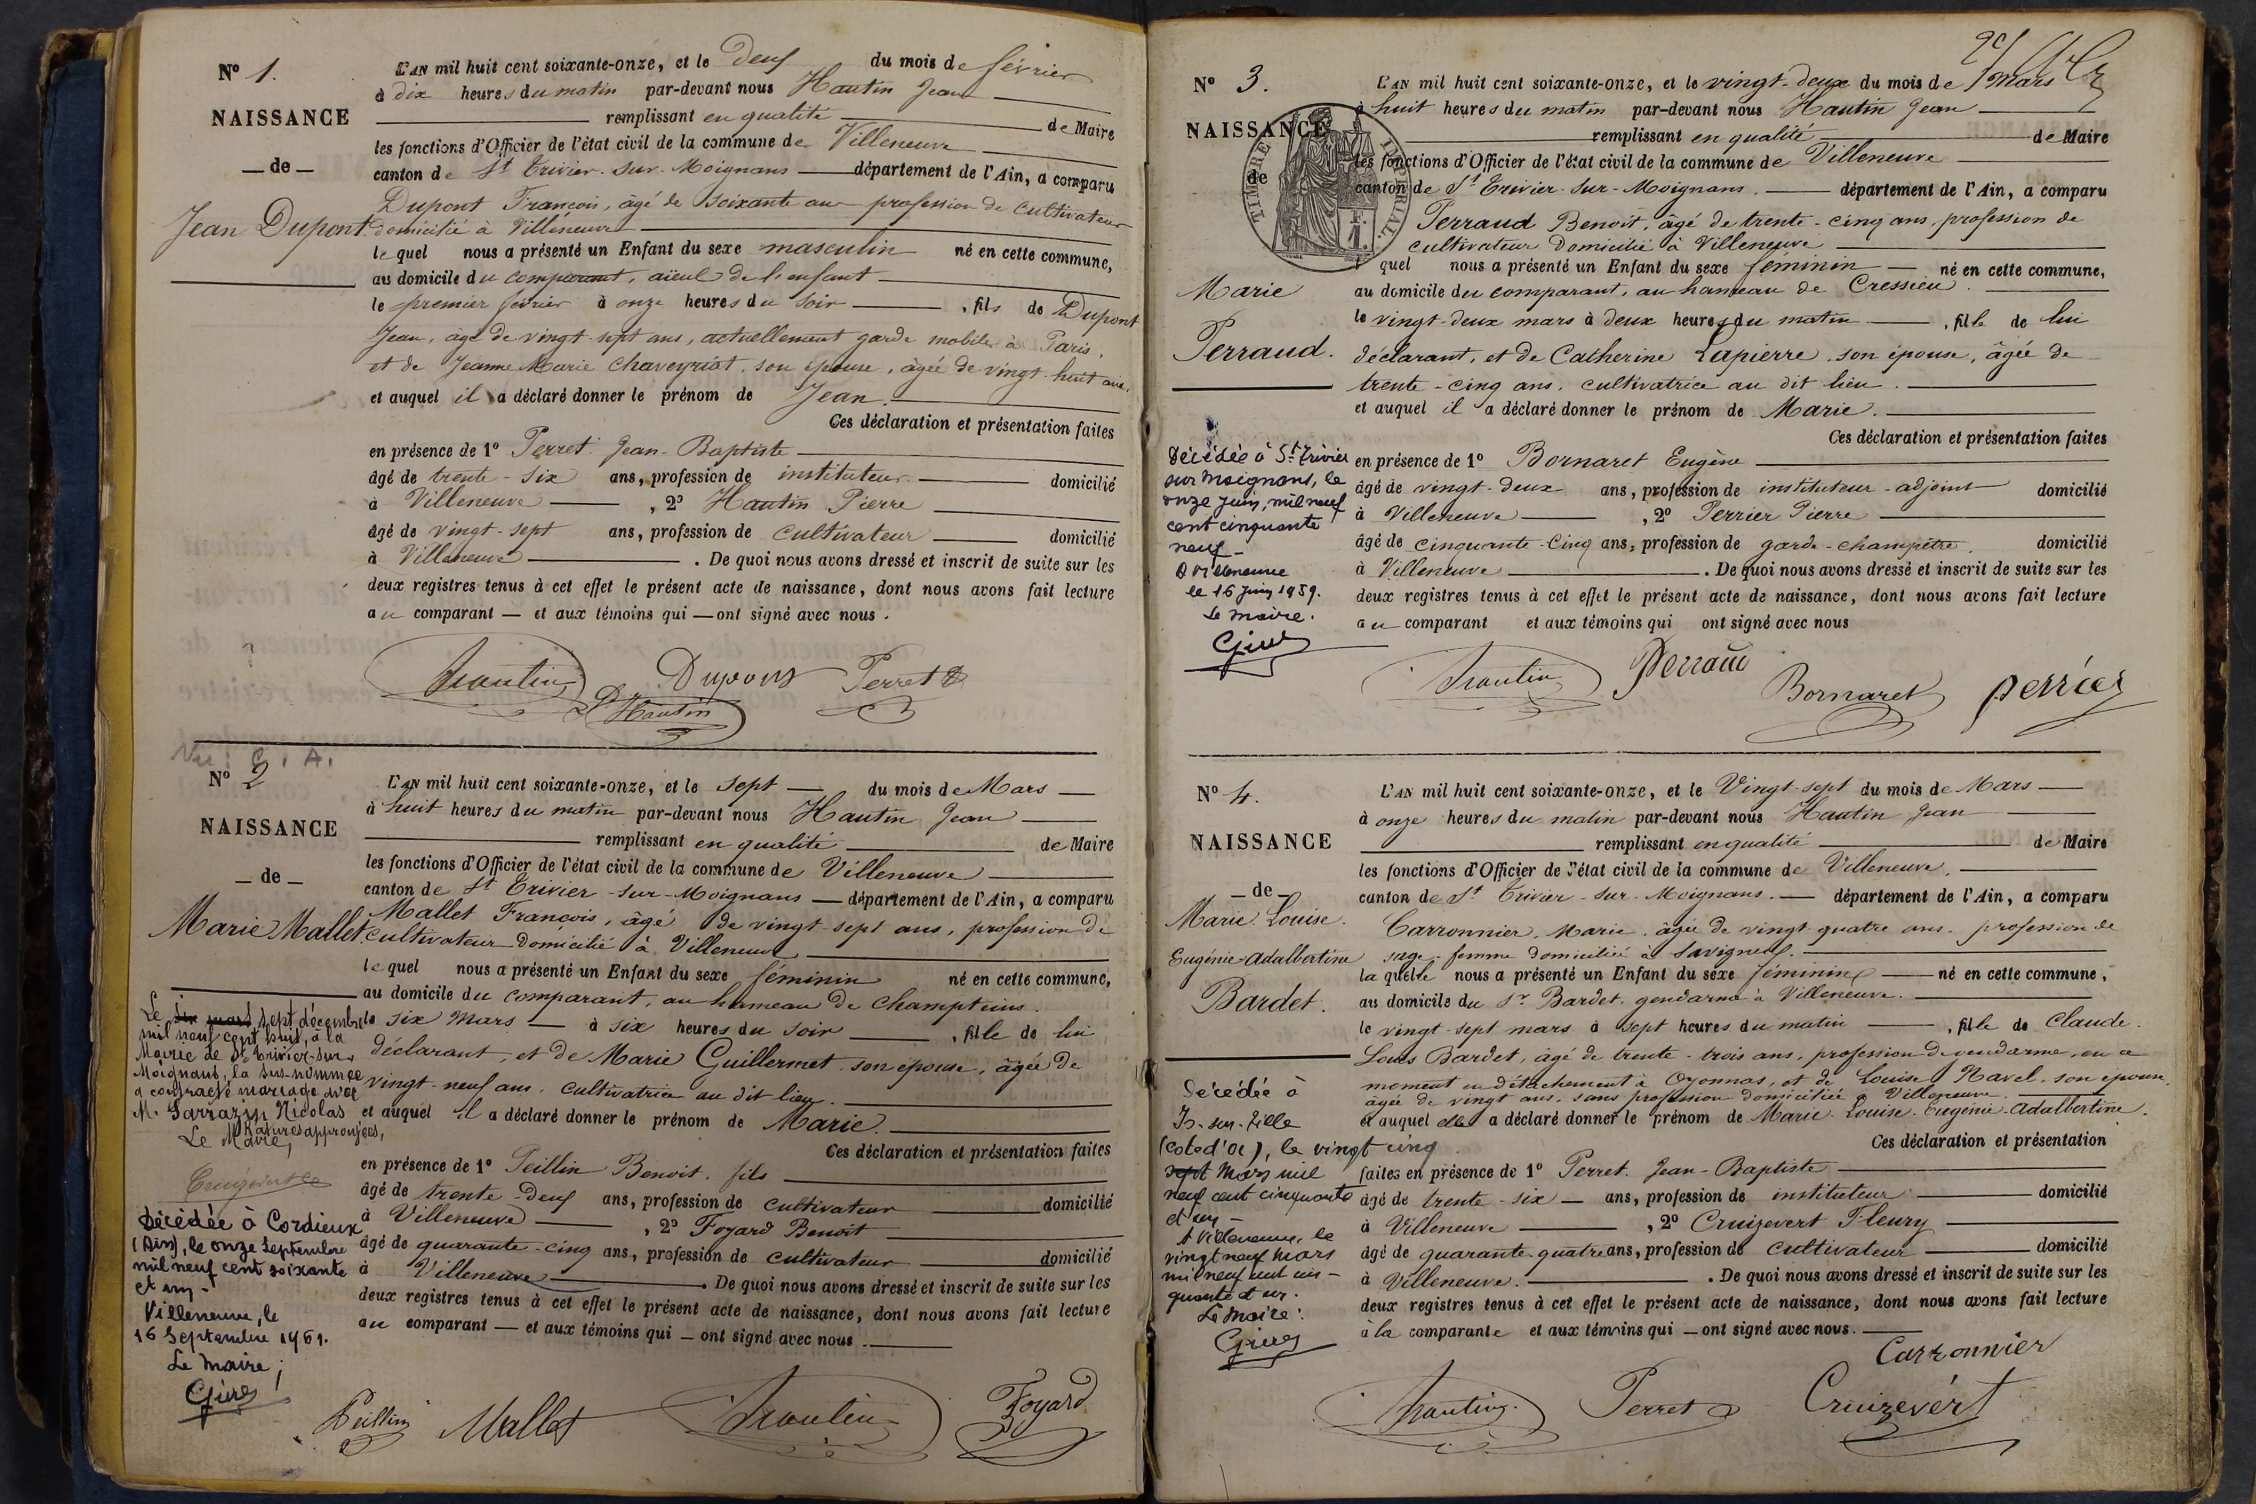 N° 1.
NAISSANCE
— de —
Jean Dupont
L'AN mil huit cent soixante-onze, et le deux du mois de février
à dix heures du matin par-devant nous Hautin Jean
remplissant en qualité de Maire
les fonctions d'Officier de l'état civil de la commune de Villeneuve
canton de St Trivier-sur-Moignans département de l'Ain, a comparu
Dupont François, âgé de soixante ans profession de cultivateur
domicilié à Villeneuve
le quel nous a présenté un Enfant du sexe masculin né en cette commune,
au domicile du comparant, aïeul de l'enfant
le premier février à onze heures du soir, fils de Dupont
Jean, âgé de vingt-sept ans, actuellement garde mobile à Paris,
et de Jeanne Marie Chaveyriat, son épouse, âgée de vingt-huit ans,
et auquel il a déclaré donner le prénom de Jean.
Ces déclaration et présentation faites
en présence de 1° Perret Jean-Baptiste
âgé de trente-six ans, profession de instituteur domicilié
à Villeneuve, 2° Hautin Pierre
âgé de vingt-sept ans, profession de cultivateur domicilié
à Villeneuve. De quoi nous avons dressé et inscrit de suite sur les
deux registres tenus à cet effet le présent acte de naissance, dont nous avons fait lecture
au comparant — et aux témoins qui — ont signé avec nous.
Hautin Dupont Perret
Hautin
Vu: C. A.
N° 2
NAISSANCE
— de —
Marie Mallet
L'AN mil huit cent soixante-onze, et le sept du mois de Mars
à huit heures du matin par-devant nous Hautin Jean
remplissant en qualité de Maire
les fonctions d'Officier de l'état civil de la commune de Villeneuve
canton de St Trivier-sur-Moignans — département de l'Ain, a comparu
Mallet François, âgé de vingt-sept ans, profession de
cultivateur domicilié à Villeneuve
le quel nous a présenté un Enfant du sexe féminin né en cette commune,
au domicile du comparant, au hameau de Champteins.
le six Mars — à six heures du soir, fille de lui
déclarant, et de Marie Guillermet son épouse, âgée de
vingt-neuf ans, cultivatrice au dit lieu.
et auquel il a déclaré donner le prénom de Marie
Ces déclaration et présentation faites
en présence de 1° Peillin Benoit, fils
âgé de trente-deux ans, profession de cultivateur domicilié
à Villeneuve, 2° Foyard Benoit
âgé de quarante-cinq ans, profession de cultivateur domicilié
à Villeneuve. De quoi nous avons dressé et inscrit de suite sur les
deux registres tenus à cet effet le présent acte de naissance, dont nous avons fait lecture
au comparant — et aux témoins qui — ont signé avec nous.
Le six mars sept décembre
mil neuf cent huit, à la
Mairie de St Trivier-sur-
Moignans, la sus-nommée
a contracté mariage avec
M. Sarrazin Nicolas
Ratures approuvées,
Le Maire,
Décédée à Cordieux
(Ain), le onze Septembre
mil neuf cent soixante
et un -
Villeneuve, le
16 Septembre 1961.
Le Maire;
Peillin Mallet Hautin Foyard
N° 3.
NAISSANCE
de
Marie
Perraud.
TIMBRE IMPERIAL
L'AN mil huit cent soixante-onze, et le vingt-deux du mois de mars
à huit heures du matin par-devant nous Hautin Jean
remplissant en qualité de Maire
les fonctions d'Officier de l'état civil de la commune de Villeneuve
canton de St Trivier-sur-Moignans. département de l'Ain, a comparu
Perraud Benoit, âgé de trente-cinq ans, profession de
cultivateur domicilié à Villeneuve
quel nous a présenté un Enfant du sexe féminin — né en cette commune,
au domicile du comparant, au hameau de Cressieu.
le vingt-deux mars à deux heures du matin, fille de lui
déclarant, et de Catherine Lapierre son épouse, âgée de
trente-cinq ans, cultivatrice au dit lieu.
et auquel il a déclaré donner le prénom de Marie.
Ces déclaration et présentation faites
en présence de 1° Bornaret Eugène
âgé de vingt-deux ans, profession de instituteur-adjoint domicilié
à Villeneuve, 2° Perrier Pierre
âgé de cinquante-cinq ans, profession de garde-champêtre. domicilié
à Villeneuve. De quoi nous avons dressé et inscrit de suite sur les
deux registres tenus à cet effet le présent acte de naissance, dont nous avons fait lecture
au comparant et aux témoins qui ont signé avec nous
Décédée à St Trivier
sur Moignans, le
onze Juin, mil neuf
cent cinquante
neuf -
A Villeneuve
le 16 Juin 1959.
Le maire.
Hautin Perraud Bornaret perrier
N° 4.
NAISSANCE
— de —
Marie Louise
Eugénie Adalbertine
Bardet.
L'AN mil huit cent soixante-onze, et le Vingt-sept du mois de Mars
à onze heures du matin par-devant nous Hautin Jean
remplissant en qualité de Maire
les fonctions d'Officier de l'état civil de la commune de Villeneuve,
canton de St Trivier-sur-Moignans. — département de l'Ain, a comparu
Carronnier, Marie, âgée de vingt-quatre ans, profession de
sage-femme domiciliée à Savigneux.
la quelle nous a présenté un Enfant du sexe féminin né en cette commune,
au domicile du Sr Bardet, gendarme à Villeneuve.
le vingt-sept mars à sept heures du matin, fille de Claude
Louis Bardet, âgé de trente-trois ans, profession de gendarme, en ce
moment en détachement à Oyonnax, et de Louise Navel, son épouse,
âgée de vingt ans, sans profession domiciliée à Villeneuve.
et auquel elle a déclaré donner le prénom de Marie-Louise-Eugénie-Adalbertine.
Ces déclaration et présentation
faites en présence de 1° Perret Jean-Baptiste
âgé de trente-six — ans, profession de instituteur domicilié
à Villeneuve, 2° Cruizevert Fleury
âgé de quarante-quatre ans, profession de cultivateur domicilié
à Villeneuve. De quoi nous avons dressé et inscrit de suite sur les
deux registres tenus à cet effet le présent acte de naissance, dont nous avons fait lecture
à la comparante et aux témoins qui — ont signé avec nous.
Décédée à
Is-sur-Tille
(Côte d'Or), le vingt cinq
sept Mars mil
neuf cent cinquante
et un -
A Villeneuve, le
vingt neuf mars
mil neuf cent cin-
quante et un.
Le Maire:
Carronnier
Hautin Perret Cruizevert